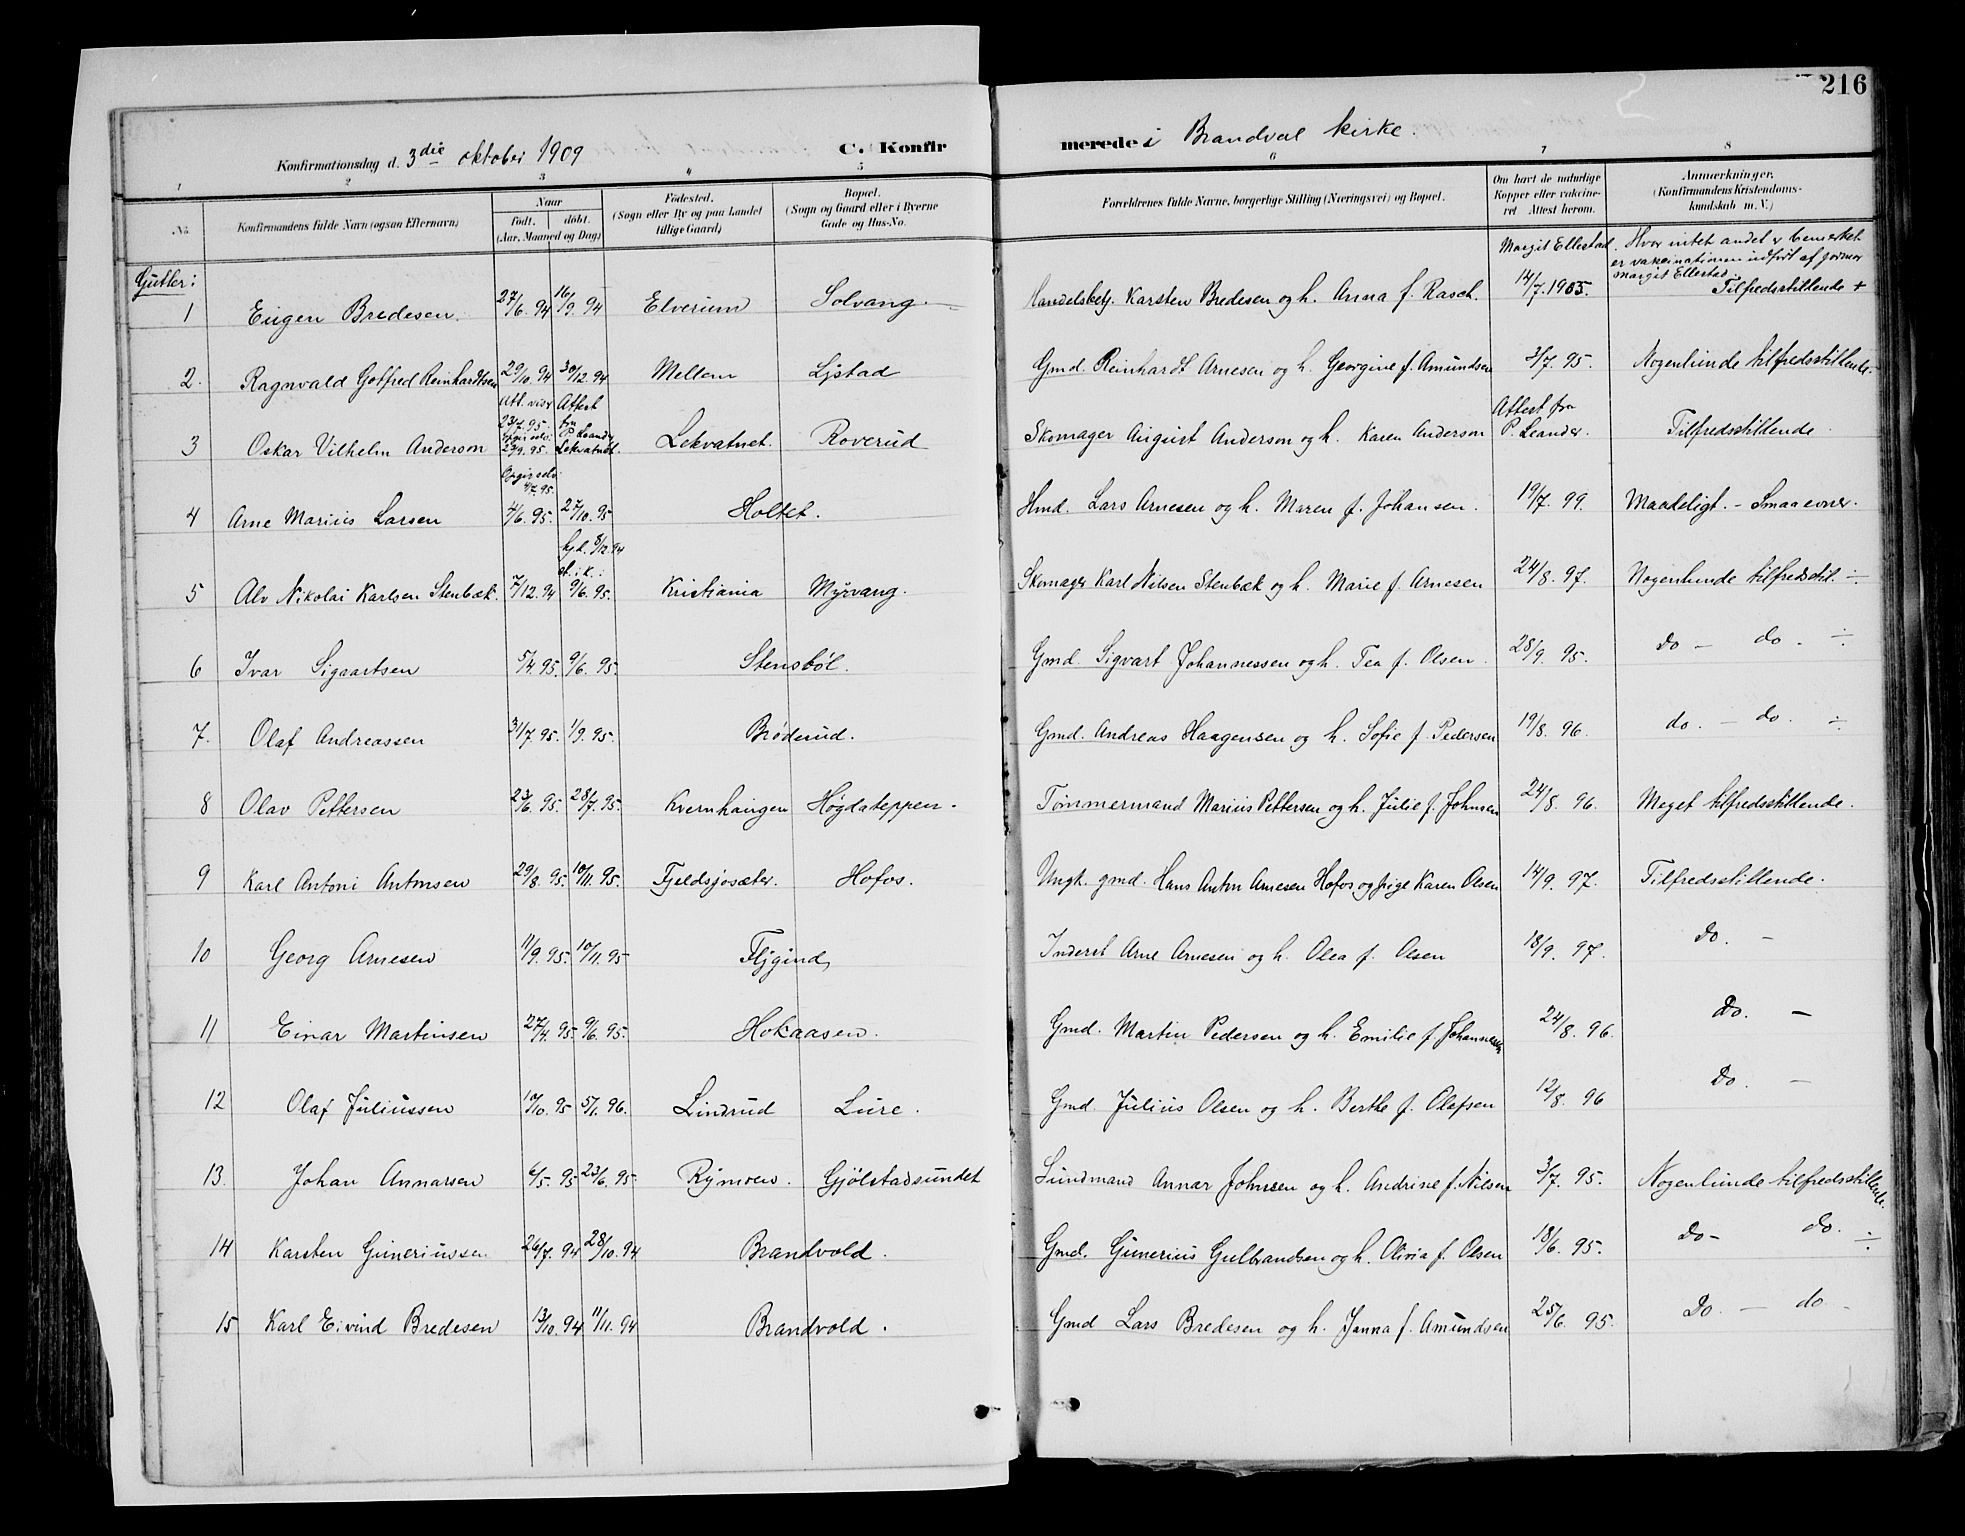 216
Konfirmationsdag d. 3die oktober 1909 C. Konfirmerede i Brandval kirke.
1 2 3 4 5 6 7 8
No. Konfirmandens fulde Navn (ogsaa Efternavn) Naar født. døbt. (Aar, Maaned og Dag) Fødested. (Sogn eller By og paa Landet tillige Gaard) Bopæl. (Sogn og Gaard eller i Byerne Gade og Hus-No. Forældrenes fulde Navne, borgerlige Stilling (Næringsvei) og Bopæl. Om havt de naturlige Kopper eller vakcineret. Attest herom. Anmærkninger. (Konfirmandens Kristendomskundskab m. V.)
Margit Ellestad. Hvor intet andet er bemerket er vakcinationen udført af jormor Margit Ellestad.
Gutter:
1 Eugen Bredesen. 27/6. 94 16/9. 94 Elverum Solvang. Handelsbetj. Karsten Bredesen og h. Anna f. Rasch. 14/7. 1905. Tilfredsstillende +
2. Ragnvald Gotfred Reinhardtsen 29/10. 94 30/12. 94 Mellem Ljstad Gmd. Reinhardt Arnesen og h. Georgine f. Amundsen 3/7. 95. Nogenlunde tilfredsstillende.
3 Oskar Vilhelm Anderson Att. viser 23/7. 95. Opgir selv. 29/9. 95. Attest fra P. Leander Lekvatnet. Lekvatnet. Roverud Skomager August Anderson og h. Karen Anderson Attest fra P. Leander. Tilfredsstillende.
4 Arne Marius Larsen Opgir selv 4/7. 95. 4/6. 95. 27/10. 95 Holtet. Hmd. Lars Arnesen og h. Maren f. Johansen. 19/7. 99. Maadeligt. - Smaa evner.
5 Alv Nikolai Karlsen Stenbæk. 7/12. 94 hjd. 8/12. 94 st. i k.: 9/6. 95. Kristiania Myrvang. Skomager Karl Nilsen Stenbæk og h. Marie f. Arnesen 24/8. 97. Nogenlunde tilfredsstil. ÷
6 Ivar Sigvartsen 5/4. 95. 9/6. 95. Stensbøl. Gmd. Sigvart Johannessen og h. Tea f. Olsen. 28/9. 95. Do - do. ÷
7. Olaf Andreassen 31/7. 95. 1/9. 95. Brøderud. Gmd. Andreas Haagensen og h. Sofie f. Pedersen 19/8. 96. do. - do. ÷
8 Olav Pettersen 23/6. 95. 28/7. 95. Kvernhaugen Høgdateppen. Tømmermand Marius Pettersen og h. Julie f. Johnsen 24/8. 96. Meget tilfredsstillende.
9 Karl Antoni Antonsen 29/8. 95. 10/11. 95. Fjeldsjøsæter. Hofos. Ungk. gmd. Hans Anton Arnesen Hofos og pige Karen Olsen 14/9. 97. Tilfredsstillende.
10 Georg Arnesen 11/9. 95. 10/11. 95 Fljgind Inderst Arne Arnesen og h. Olea f. Olsen 18/9. 97. Do. -
11 Einar Martinsen 27/4. 95. 9/6. 95. Hokaasen. Gmd. Martin Pedersen og h. Emilie f. Johannessen 24/8. 96. Do. -
12 Olaf Juliussen 10/10. 95 5/1. 96. Lindrud Lure. Gmd. Julius Olsen og h. Berthe f. Olafsen 12/8. 96 Do. -
13. Johan Annarsen 6/5. 95 23/6. 95 Rymoen. Gjølstadsundet Sundmand Annar Johnsen og h. Andrine f. Nilsen 3/7. 95. Nogenlunde tilfredsstillende.
14 Karsten Guneriussen 26/7. 94 28/10. 94 Brandvold. Gmd. Gunerius Gulbrandsen og h. Olivia f. Olsen 18/6. 95. Do - do. ÷
15 Karl Eivind Bredesen 13/10. 94 11/11. 94 Brandvold. Gmd Lars Bredesen og h. Janna f. Amundsen 25/6. 95. Do. - do -